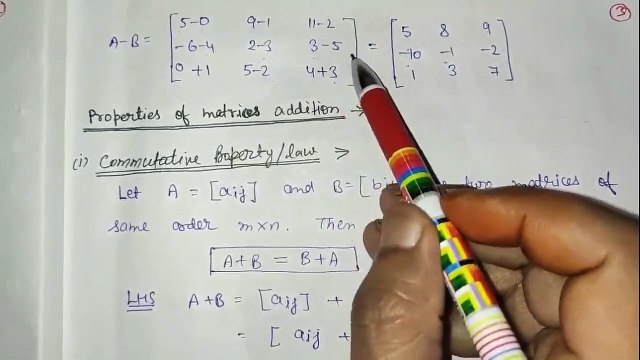 ③
A-B = [5-0 9-1 11-2] = [5 8 9]
[-6-4 2-3 3-5] [-10 -1 -2]
[0+1 5-2 4+3] [1 3 7]
Properties of matrices addition →
(i) Commutative Property/law ⇒
Let A = [aij] and B = [bij] two matrices of
same order m×n. Then
A+B = B+A
LHS A+B = [aij] +
= [aij +